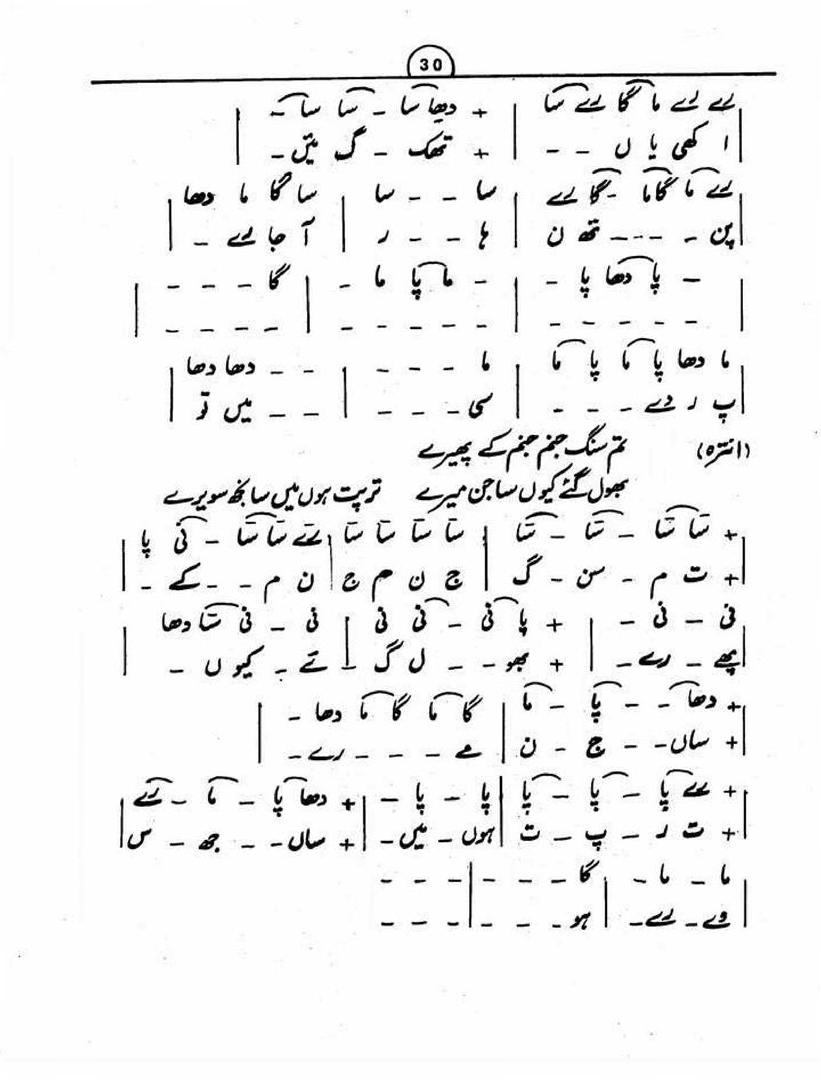 30
رے رے ما گا رے سا | + دھا سا - سا سا - |
ا کھی یا ں - - | + تھک - گ ئیں - |
رے ما گا ما - گا رے | سا - - سا | سا گا ما دھا |
پن - --- تھ ن | ہا - - ر | آ جا رے - |
| - پا دھا پا - | - ما پا ما - | گا - - - |
| - - - - - | - - - - - | - - - - |
ما دھا پا ما پا ما | ما - - - | - - دھا دھا |
پ ر دے - - - | سی - - - | - - میں تو |
(انترہ) تم سنگ جنم جنم کے پھیرے
بھول گئے کیوں ساجن میرے تڑپت ہوں میں سانجھ سویرے
+ سا سا - سا - سا | سا سا سا سا | رے سا سا - نی پا |
+ ت م - سن - گ | ج ن م ج | ن م - - کے - |
نی - نی - | + پا نی - نی نی | نی - نی سا دھا |
پھے - رے - | + بھو - - ل گ | ئے - کیو ں - |
+ دھا - - پا - ما | گا ما گا ما دھا - |
+ ساں - - ج - ن | مے - - - رے - |
+ رے پا - پا - پا | پا - پا - | + دھا پا - ما - رے |
+ ت ر - پ - ت | ہوں - میں - | + ساں - - جھ - س |
ما - ما - | گا - - - | - - - |
وے - رے - | ہو - - - | - - - |